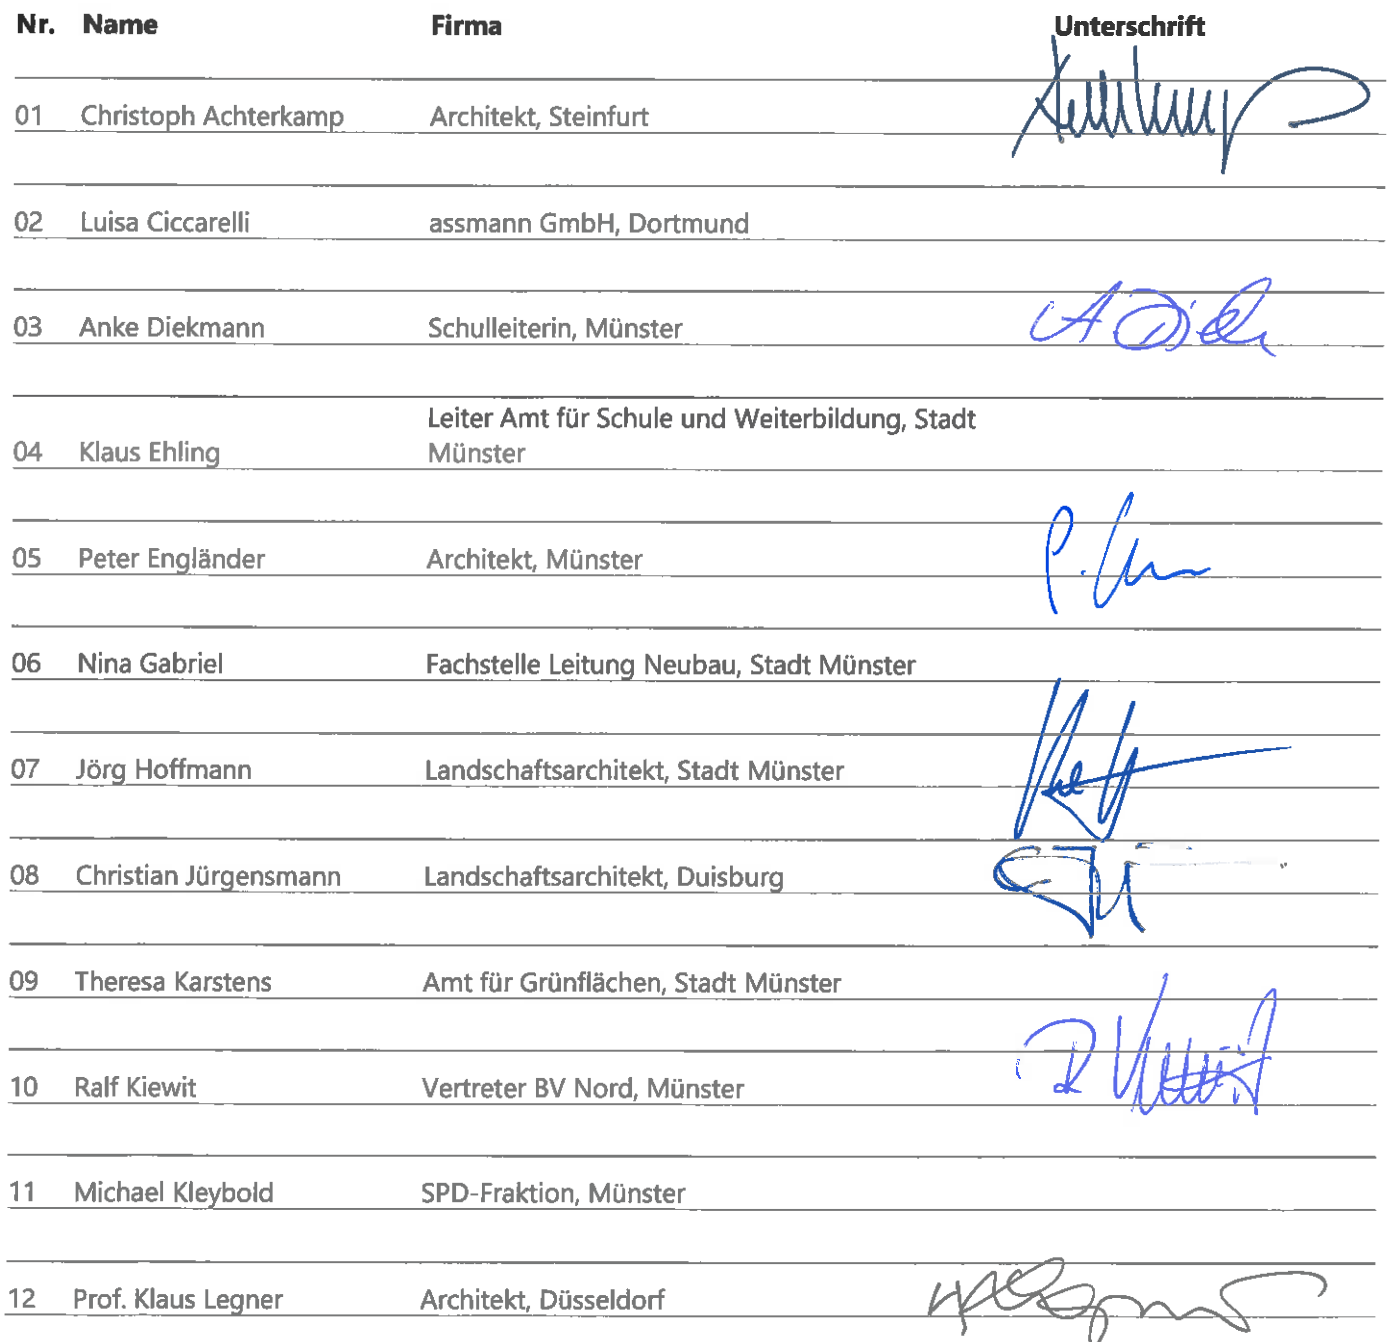 Nr. Name Firma Unterschrift
01 Christoph Achterkamp Architekt, Steinfurt
02 Luisa Ciccarelli assmann GmbH, Dortmund
03 Anke Diekmann Schulleiterin, Münster
Leiter Amt für Schule und Weiterbildung, Stadt
04 Klaus Ehling Münster
05 Peter Engländer Architekt, Münster
06 Nina Gabriel Fachstelle Leitung Neubau, Stadt Münster
07 Jörg Hoffmann Landschaftsarchitekt, Stadt Münster
08 Christian Jürgensmann Landschaftsarchitekt, Duisburg
09 Theresa Karstens Amt für Grünflächen, Stadt Münster
10 Ralf Kiewit Vertreter BV Nord, Münster
11 Michael Kleybold SPD-Fraktion, Münster
12 Prof. Klaus Legner Architekt, Düsseldorf